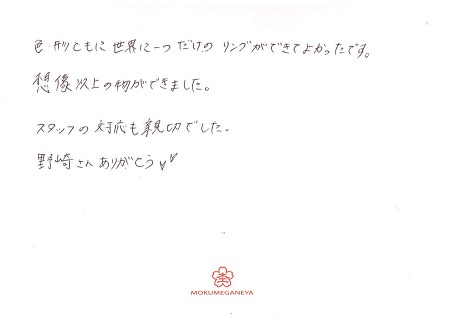 色・形ともに世界に一つだけのリングができてよかったです。
想像以上の物ができました。
スタッフの対応も親切でした。
野崎さんありがとう♥♥
MOKUMEGANEYA